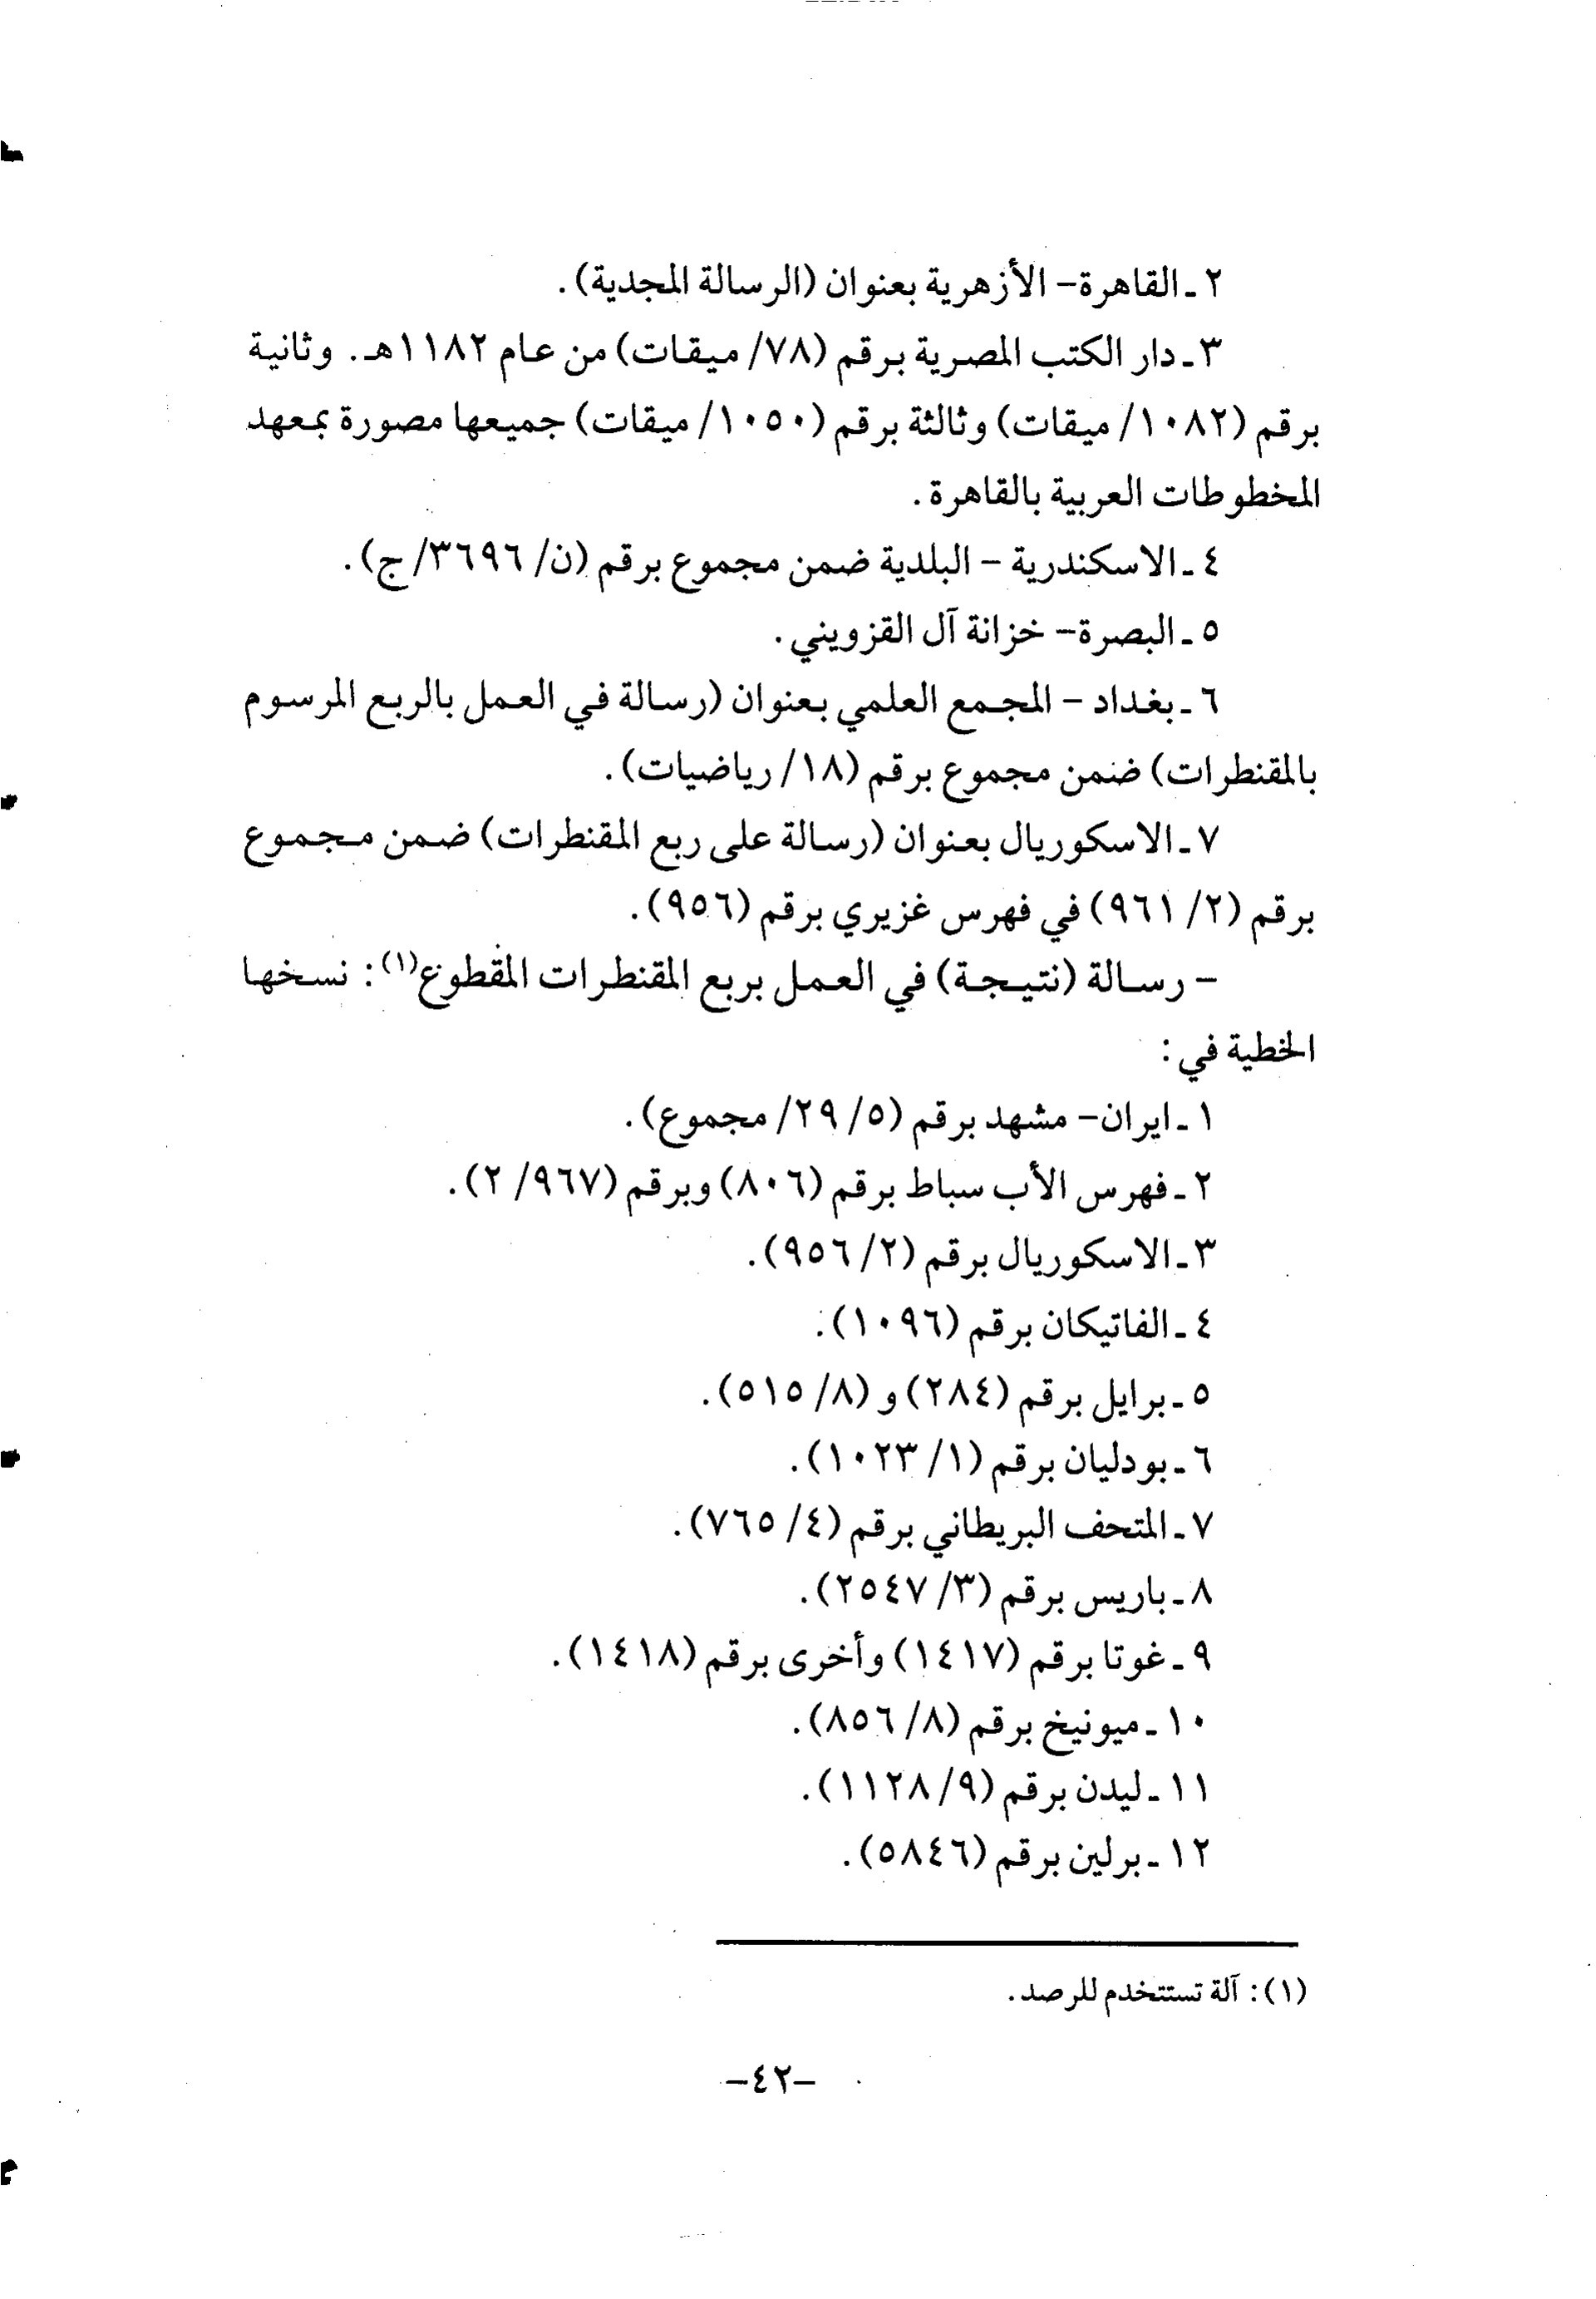 ٢ ـ القاهرة- الأزهرية بعنوان (الرسالة المجدية).
٣ ـ دار الكتب المصرية برقم (٧٨/ ميقات) من عام ١١٨٢هـ. وثانية
برقم (١٠٨٢/ ميقات) وثالثة برقم (١٠٥٠/ ميقات) جميعها مصورة بمعهد
المخطوطات العربية بالقاهرة.
٤ ـ الاسكندرية - البلدية ضمن مجموع برقم (ن/ ٣٦٩٦/ ج).
٥ ـ البصرة- خزانة آل القزويني.
٦ ـ بغداد - المجمع العلمي بعنوان (رسالة في العمل بالربع المرسوم
بالمقنطرات) ضمن مجموع برقم (١٨/ رياضيات).
٧ ـ الاسكوريال بعنوان (رسالة على ربع المقنطرات) ضمن مجموع
برقم (٢/ ٩٦١) في فهرس غزيري برقم (٩٥٦).
- رسالة (نتيجة) في العمل بربع المقنطرات المقطوع(١): نسخها
الخطية في:
١ ـ ايران- مشهد برقم (٥/ ٢٩/ مجموع).
٢ ـ فهرس الأب سباط برقم (٨٠٦) وبرقم (٩٦٧/ ٢).
٣ ـ الاسكوريال برقم (٢/ ٩٥٦).
٤ ـ الفاتيكان برقم (١٠٩٦).
٥ ـ برايل برقم (٢٨٤) و (٨/ ٥١٥).
٦ ـ بودليان برقم (١/ ١٠٢٣).
٧ ـ المتحف البريطاني برقم (٤/ ٧٦٥).
٨ ـ باريس برقم (٣/ ٢٥٤٧).
٩ ـ غوتا برقم (١٤١٧) وأخرى برقم (١٤١٨).
١٠ ـ ميونيخ برقم (٨/ ٨٥٦).
١١ ـ ليدن برقم (٩/ ١١٢٨).
١٢ ـ برلين برقم (٥٨٤٦).
(١): آلة تستتخدم للرصد.
-٤٢-